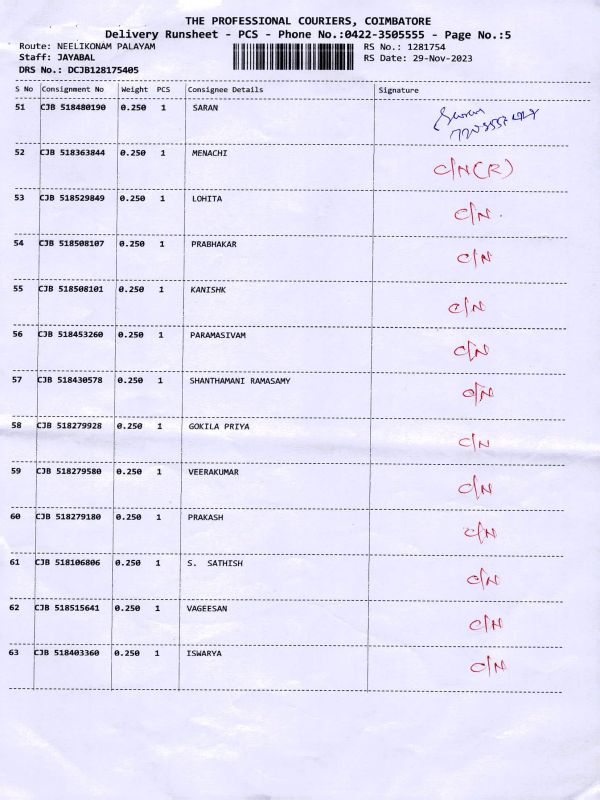 THE PROFESSIONAL COURIERS, COIMBATORE
Delivery Runsheet - PCS - Phone No.:0422-3505555 - Page No.:5
Route: NEELIKONAM PALAYAM RS No.: 1281754
Staff: JAYABAL RS Date: 29-Nov-2023
DRS No.: DCJB128175405
S No Consignment No Weight PCS Consignee Details Signature
51 CJB 518480190 0.250 1 SARAN
52 CJB 518363844 0.250 1 MENACHI C/N(R)
53 CJB 518529849 0.250 1 LOHITA C/N.
54 CJB 518508107 0.250 1 PRABHAKAR C/N
55 CJB 518508101 0.250 1 KANISHK C/N
56 CJB 518453260 0.250 1 PARAMASIVAM C/N
57 CJB 518430578 0.250 1 SHANTHAMANI RAMASAMY
58 CJB 518279928 0.250 1 GOKILA PRIYA C/N
59 CJB 518279580 0.250 1 VEERAKUMAR C/N
60 CJB 518279180 0.250 1 PRAKASH C/N
61 CJB 518106806 0.250 1 S. SATHISH C/N
62 CJB 518515641 0.250 1 VAGEESAN C/N
63 CJB 518403360 0.250 1 ISWARYA C/N